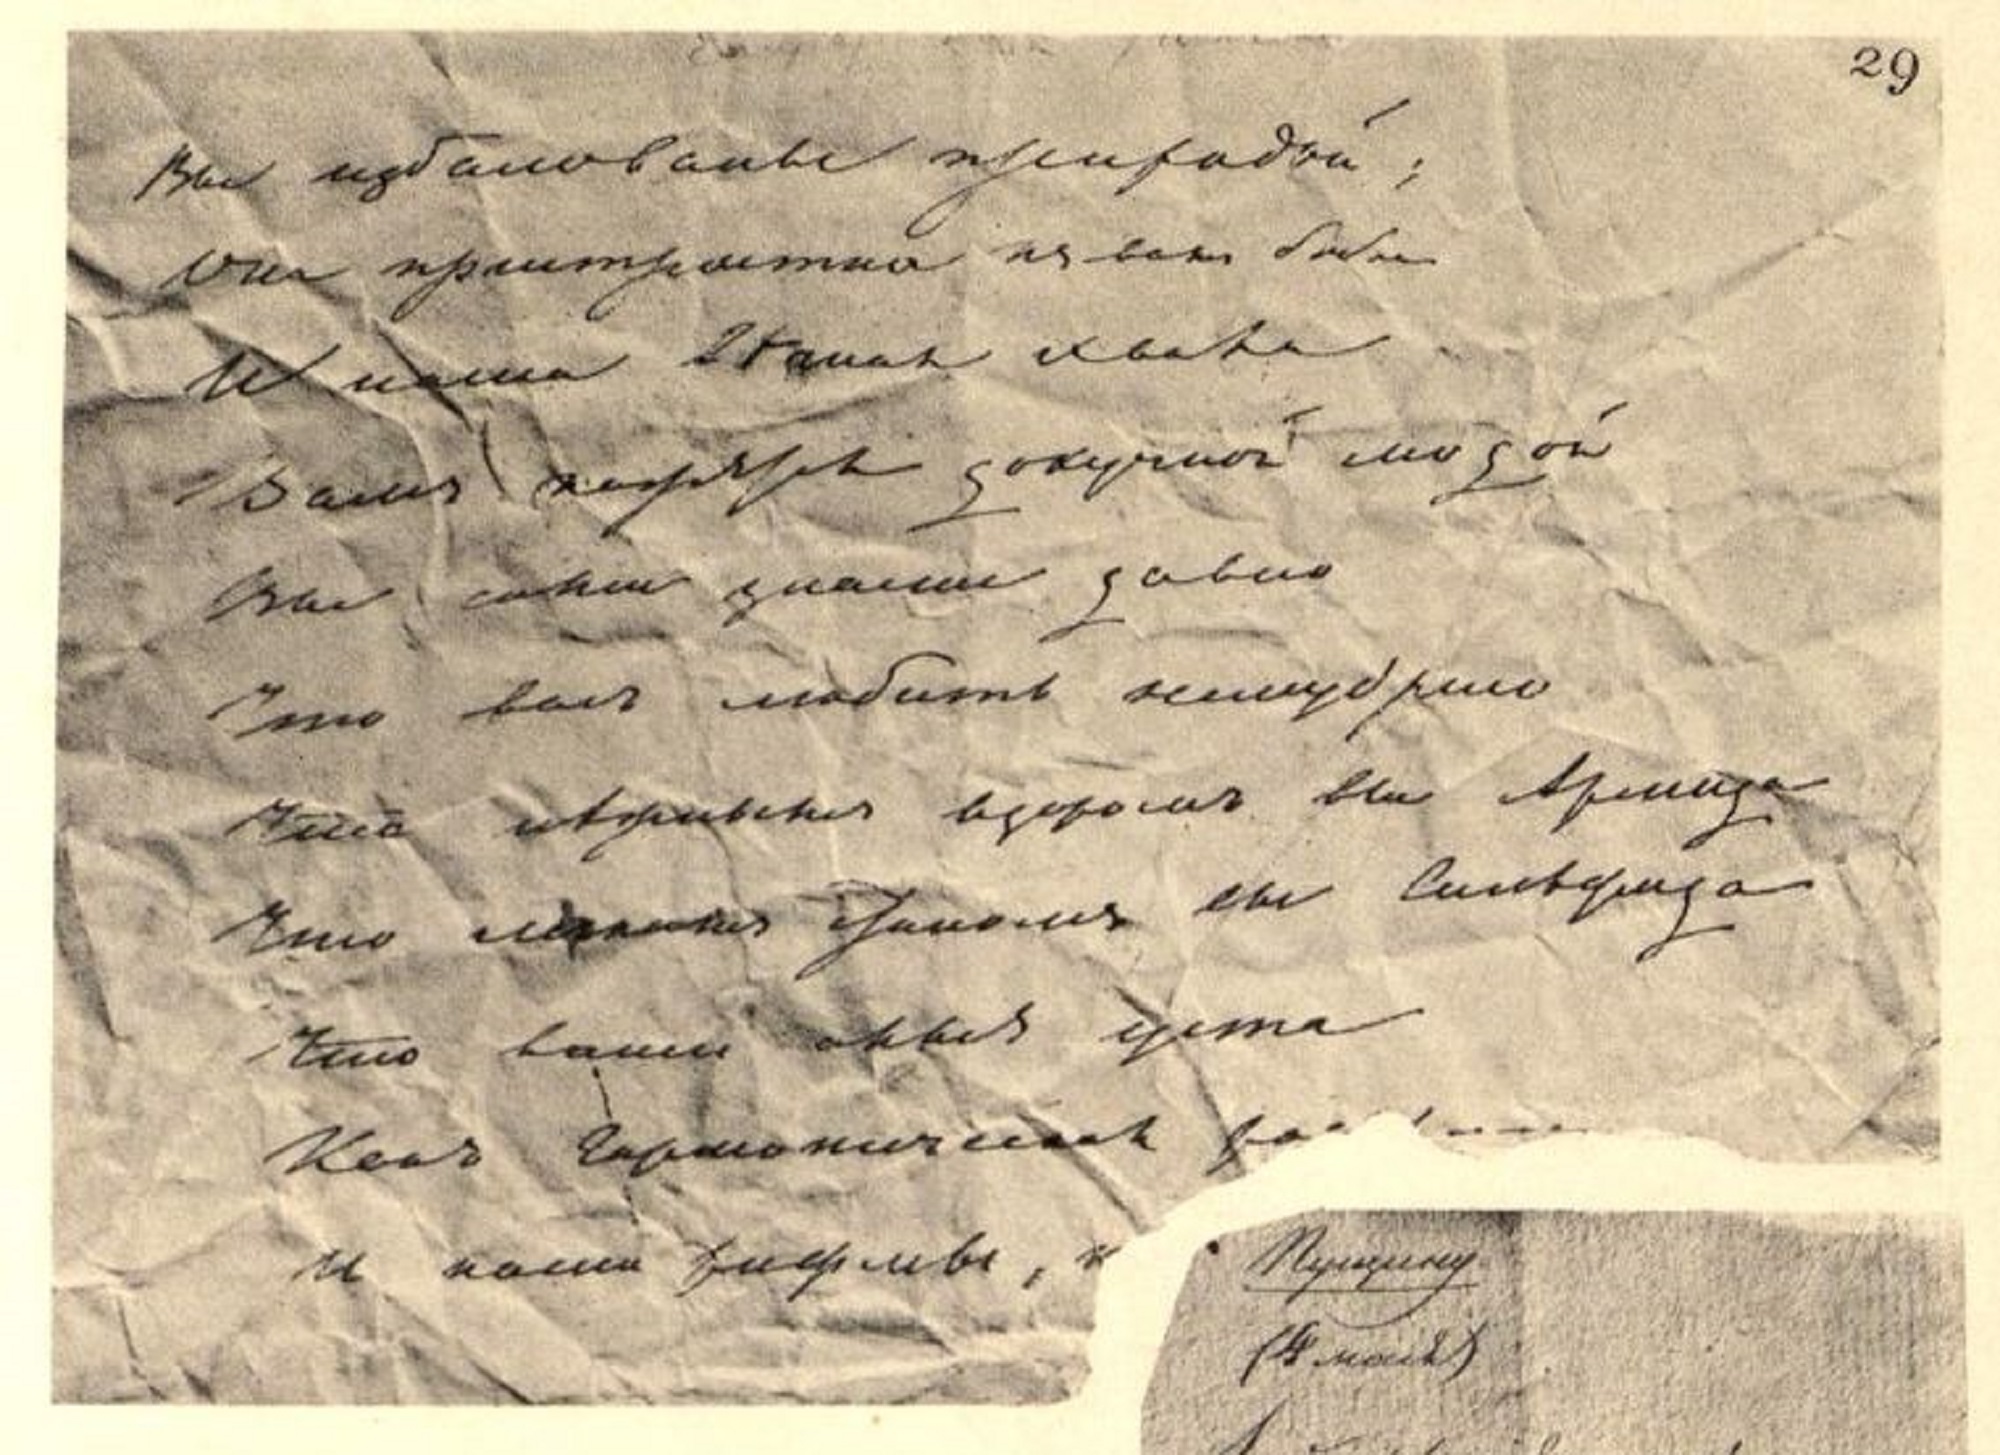 29
Вы избалованы природой;
Она пристрастна къ вамъ была
И наша хвала
Вамъ докучной модой
Вы сами давно
Что васъ любить немудрено
Что взоромъ вы Армида
Что станомъ вы Сильфида
Что ваши уста
Какъ гармоническая
И наши рифмы, н
Пущину
(4 мая)